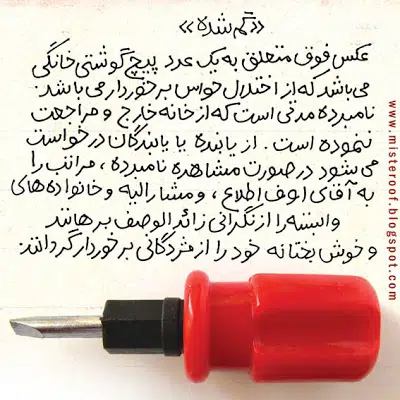 «گم شده»
عکس فوق متعلق به یک عدد پیچ گوشتی خانگی
می باشد که از اختلال حواس برخوردار می باشد.
نامبرده مدتی است که از خانه خارج و مراجعت
ننموده است. از یابنده یا یابندگان درخواست
می شود در صورت مشاهده نامبرده، مراتب را
به آقای اوف اطلاع، و مشارالیه و خانواده های
وابسته را از نگرانی زائد الوصف برهانند
و خوش بختانه خود را از مژدگانی برخوردار گردانند.
www.misteroof.blogspot.com